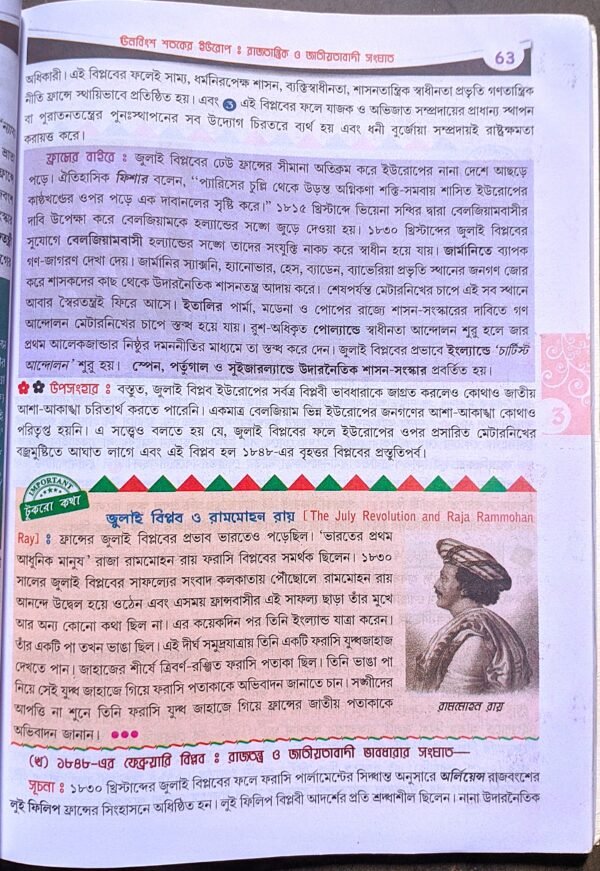 ঊনবিংশ শতকের ইউরোপ : রাজতান্ত্রিক ও জাতীয়তাবাদী সংঘাত
63
অধিকারী। এই বিপ্লবের ফলেই সাম্য, ধর্মনিরপেক্ষ শাসন, ব্যক্তিস্বাধীনতা, শাসনতান্ত্রিক স্বাধীনতা প্রভৃতি গণতান্ত্রিক
নীতি ফ্রান্সে স্থায়িভাবে প্রতিষ্ঠিত হয়। এবং 3 এই বিপ্লবের ফলে যাজক ও অভিজাত সম্প্রদায়ের প্রাধান্য স্থাপন
বা পুরাতনতন্ত্রের পুনঃস্থাপনের সব উদ্যোগ চিরতরে ব্যর্থ হয় এবং ধনী বুর্জোয়া সম্প্রদায়ই রাষ্ট্রক্ষমতা
করায়ত্ত করে।
ফ্রান্সের বাইরে : জুলাই বিপ্লবের ঢেউ ফ্রান্সের সীমানা অতিক্রম করে ইউরোপের নানা দেশে আছড়ে
পড়ে। ঐতিহাসিক ফিশার বলেন, “প্যারিসের চুল্লি থেকে উড়ন্ত অগ্নিকণা শক্তি-সমবায় শাসিত ইউরোপের
কাষ্ঠখণ্ডের ওপর পড়ে এক দাবানলের সৃষ্টি করে।” ১৮১৫ খ্রিস্টাব্দে ভিয়েনা সন্ধির দ্বারা বেলজিয়ামবাসীর
দাবি উপেক্ষা করে বেলজিয়ামকে হল্যান্ডের সঙ্গে জুড়ে দেওয়া হয়। ১৮৩০ খ্রিস্টাব্দের জুলাই বিপ্লবের
সুযোগে বেলজিয়ামবাসী হল্যান্ডের সঙ্গে তাদের সংযুক্তি নাকচ করে স্বাধীন হয়ে যায়। জার্মানিতে ব্যাপক
গণ-জাগরণ দেখা দেয়। জার্মানির স্যাক্সনি, হ্যানোভার, হেস, ব্যাডেন, ব্যাভেরিয়া প্রভৃতি স্থানের জনগণ জোর
করে শাসকদের কাছ থেকে উদারনৈতিক শাসনতন্ত্র আদায় করে। শেষপর্যন্ত মেটারনিখের চাপে এই সব স্থানে
আবার স্বৈরতন্ত্রই ফিরে আসে। ইতালির পার্মা, মডেনা ও পোপের রাজ্যে শাসন-সংস্কারের দাবিতে গণ
আন্দোলন মেটারনিখের চাপে স্তব্ধ হয়ে যায়। রুশ-অধিকৃত পোল্যান্ডে স্বাধীনতা আন্দোলন শুরু হলে জার
প্রথম আলেকজান্ডার নিষ্ঠুর দমননীতির মাধ্যমে তা স্তব্ধ করে দেন। জুলাই বিপ্লবের প্রভাবে ইংল্যান্ডে ‘চার্টিস্ট
আন্দোলন’ শুরু হয়। স্পেন, পর্তুগাল ও সুইজারল্যান্ডে উদারনৈতিক শাসন-সংস্কার প্রবর্তিত হয়।
উপসংহার : বস্তুত, জুলাই বিপ্লব ইউরোপের সর্বত্র বিপ্লবী ভাবধারাকে জাগ্রত করলেও কোথাও জাতীয়
আশা-আকাঙ্ক্ষা চরিতার্থ করতে পারেনি। একমাত্র বেলজিয়াম ভিন্ন ইউরোপের জনগণের আশা-আকাঙ্ক্ষা কোথাও
পরিতৃপ্ত হয়নি। এ সত্ত্বেও বলতে হয় যে, জুলাই বিপ্লবের ফলে ইউরোপের ওপর প্রসারিত মেটারনিখের
বজ্রমুষ্টিতে আঘাত লাগে এবং এই বিপ্লব হল ১৮৪৮-এর বৃহত্তর বিপ্লবের প্রস্তুতিপর্ব।
3
IMPORTANT
টুকরো কথা
জুলাই বিপ্লব ও রামমোহন রায় [The July Revolution and Raja Rammohan
Ray] : ফ্রান্সের জুলাই বিপ্লবের প্রভাব ভারতেও পড়েছিল। ‘ভারতের প্রথম
আধুনিক মানুষ’ রাজা রামমোহন রায় ফরাসি বিপ্লবের সমর্থক ছিলেন। ১৮৩০
সালের জুলাই বিপ্লবের সাফল্যের সংবাদ কলকাতায় পৌঁছোলে রামমোহন রায়
আনন্দে উদ্বেল হয়ে ওঠেন এবং এসময় ফ্রান্সবাসীর এই সাফল্য ছাড়া তাঁর মুখে
আর অন্য কোনো কথা ছিল না। এর কয়েকদিন পর তিনি ইংল্যান্ড যাত্রা করেন।
তাঁর একটি পা তখন ভাঙা ছিল। এই দীর্ঘ সমুদ্রযাত্রায় তিনি একটি ফরাসি যুদ্ধজাহাজ
দেখতে পান। জাহাজের শীর্ষে ত্রিবর্ণ-রঞ্জিত ফরাসি পতাকা ছিল। তিনি ভাঙা পা
নিয়ে সেই যুদ্ধ জাহাজে গিয়ে ফরাসি পতাকাকে অভিবাদন জানাতে চান। সঙ্গীদের
আপত্তি না শুনে তিনি ফরাসি যুদ্ধ জাহাজে গিয়ে ফ্রান্সের জাতীয় পতাকাকে
অভিবাদন জানান।
রামমোহন রায়
(খ) ১৮৪৮-এর ফেব্রুয়ারি বিপ্লব : রাজতন্ত্র ও জাতীয়তাবাদী ভাবধারার সংঘাত—
সূচনা : ১৮৩০ খ্রিস্টাব্দের জুলাই বিপ্লবের ফলে ফরাসি পার্লামেন্টের সিদ্ধান্ত অনুসারে অর্লিয়েন্স রাজবংশের
লুই ফিলিপ ফ্রান্সের সিংহাসনে অধিষ্ঠিত হন। লুই ফিলিপ বিপ্লবী আদর্শের প্রতি শ্রদ্ধাশীল ছিলেন। নানা উদারনৈতিক